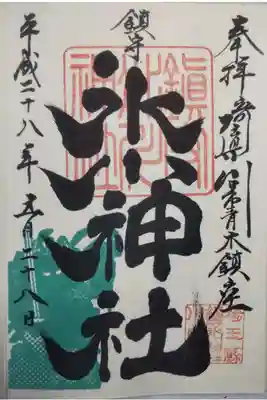 奉拝 埼玉県川口市青木鎮座
鎮守
氷川神社
平成二十八年五月二十八日